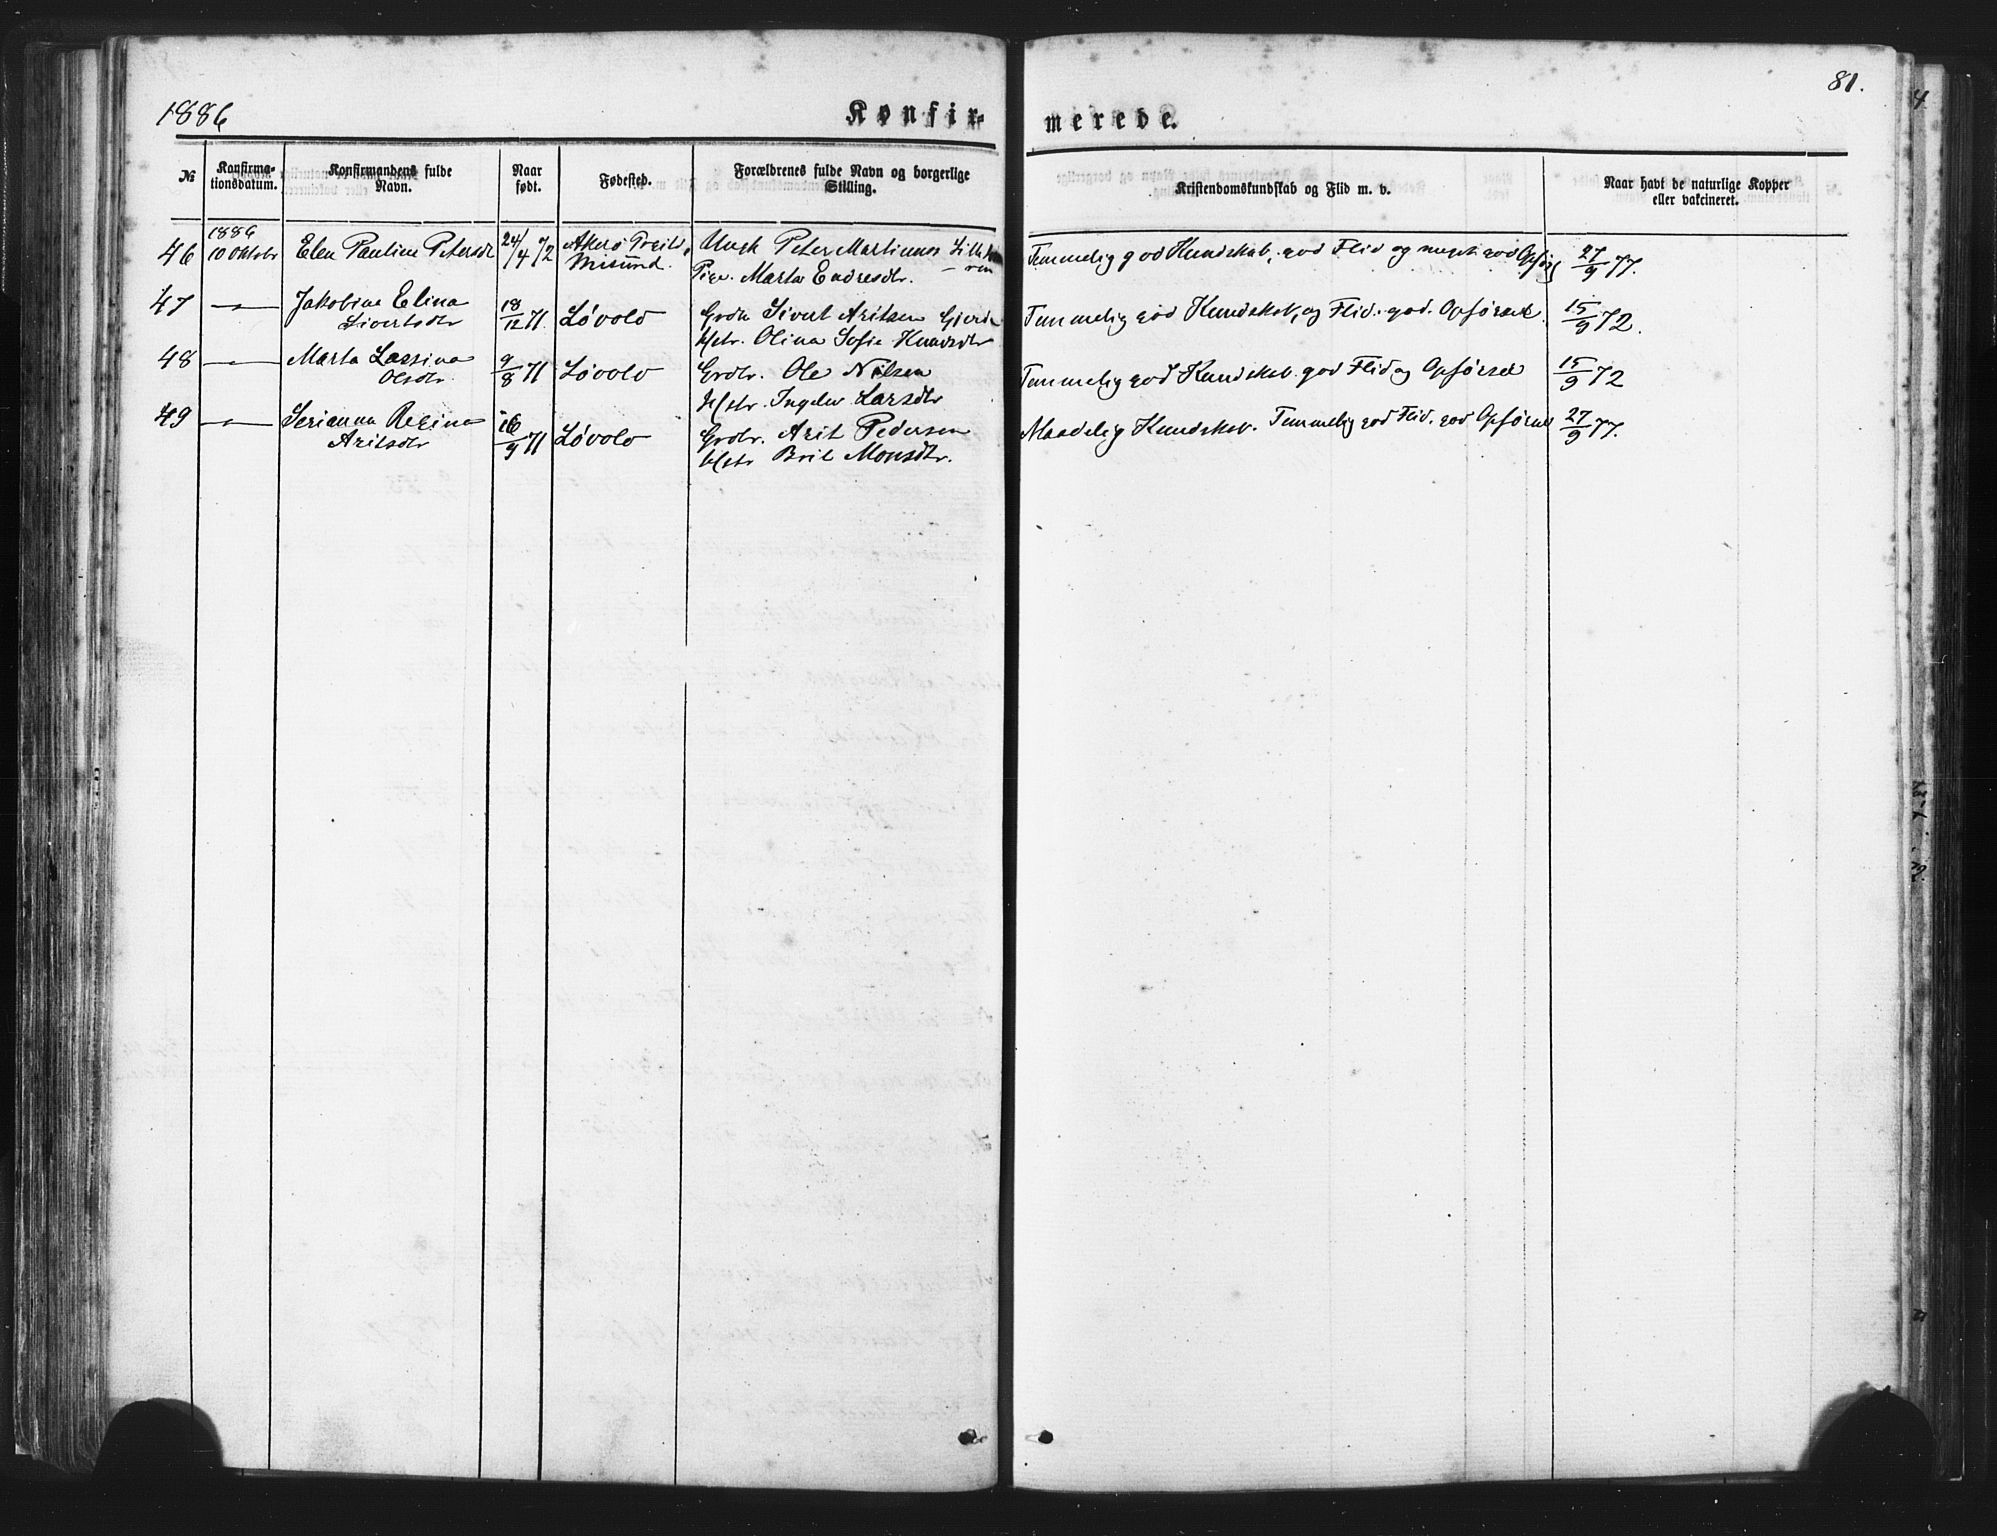 1886
Konfir-
merede.
81.
№
Konfirma-
tionsdatum.
Konfirmandens fulde
Navn.
Naar
født.
Fødested.
Forældrenes fulde Navn og borgerlige
Stilling.
Kristendomskundskab og Flid m. v.
Naar havt de naturlige Kopper
eller vakcineret.
46 1886 10 Oktobr Elen Pauline Petersdtr 24/4 72 Akerø
Misund. Ungk Peter Martinus
Pige. Marta Endresdtr.
Temmelig god Kundskab, god Flid og meget god Opførs 27/9 77.
47 — Jakobine Elina
Sivertsdtr 18/12 71. Løvold Grdbr Sivert Aritsen
Hstr. Olina Sofie Knudsdtr
Temmelig god Kundskab, og Flid. god. Opførsel. 15/9 72.
48 — Marta Lassina
Olsdtr. 9/8 71 Løvold Grdbr. Ole Nilsen
Hstr. Ingebr Larsdtr
Temmelig god Kundskab. god Flid og Opførsel 15/9 72
49 — Serianna Regina
Aritsdtr 16/9 71 Løvold Grdbr. Arit Pedersen
Hstr Brit Monsdtr.
Maadelig Kundskab. Temmelig god Flid. god Opførsel 27/9 77.